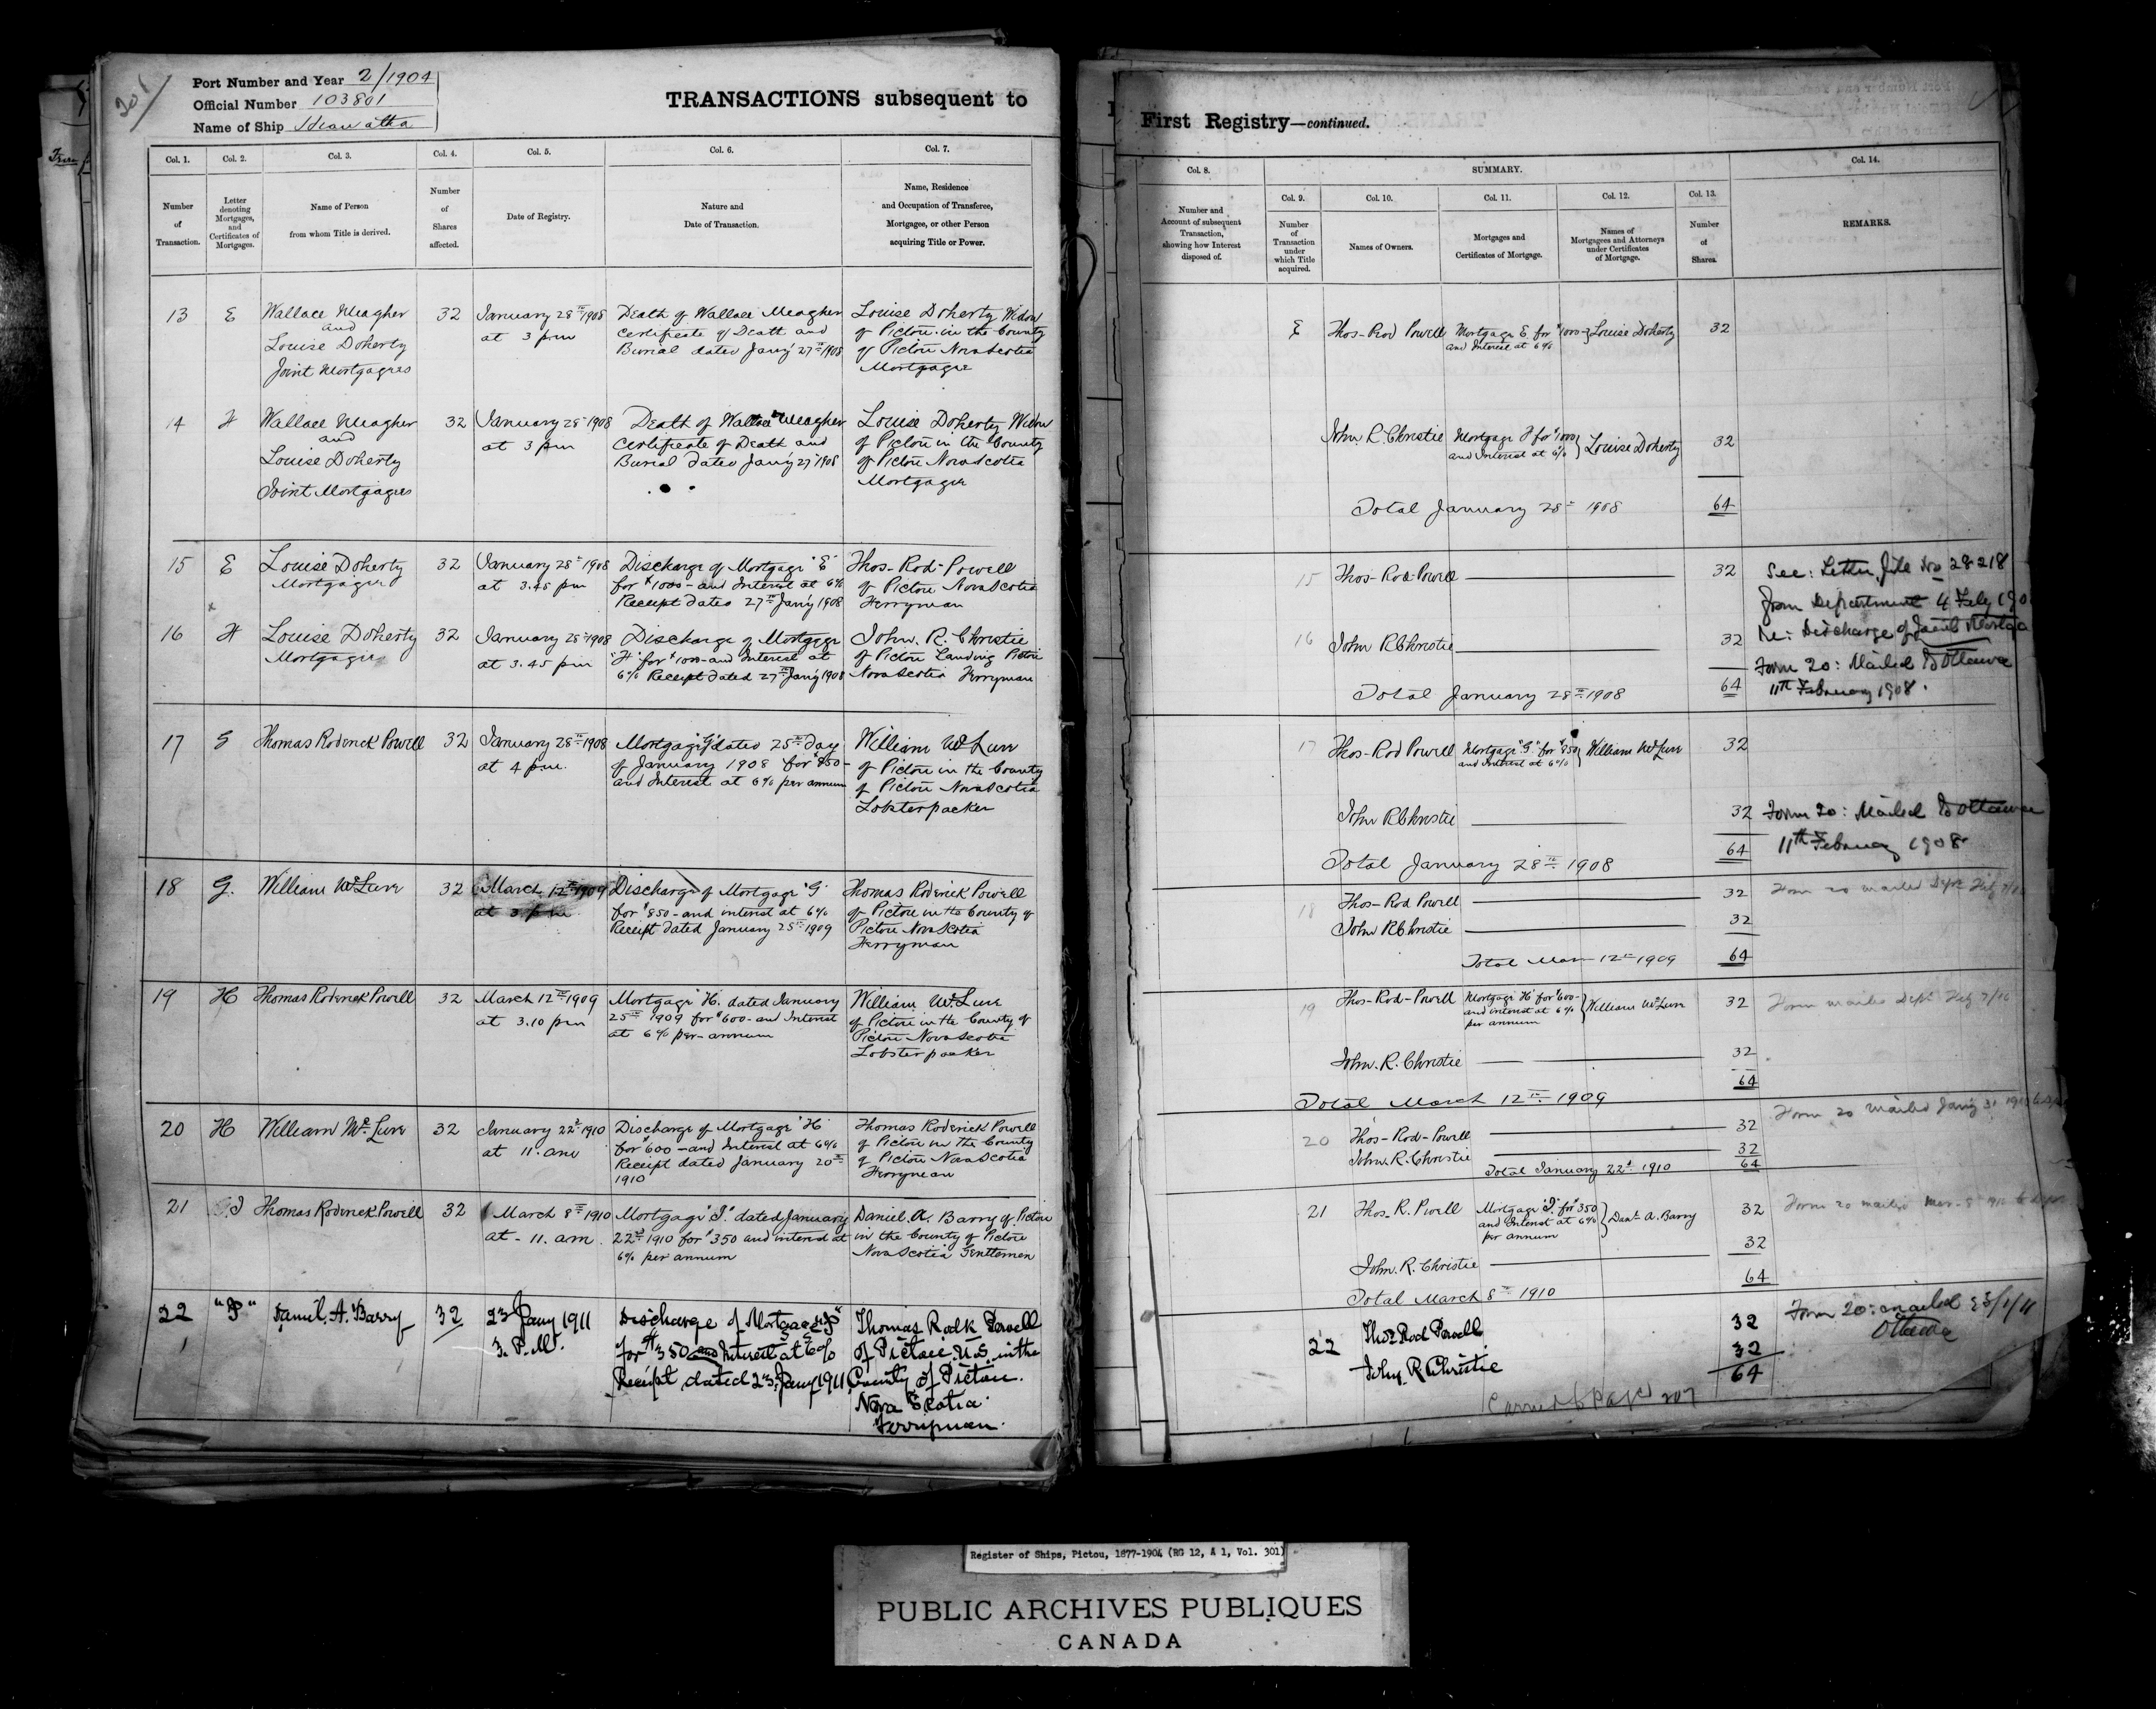 201
Port Number and Year 2/1904
Official Number 103801
Name of Ship Hiawatha
TRANSACTIONS subsequent to
Col. 1.
Col. 2.
Col. 3.
Col. 4.
Col. 5.
Col. 6.
Col. 7.
Number
of
Transaction.
Letter
denoting
Mortgages,
and
Certificates of
Mortgages.
Name of Person
from whom Title is derived.
Number
of
Shares
affected.
Date of Registry.
Nature and
Date of Transaction.
Name, Residence
and Occupation of Transferee,
Mortgagee, or other Person
acquiring Title or Power.
13 E
Wallace Meagher
and
Louise Doherty
Joint Mortgagees
32
January 28th 1908
at 3 p m
Death of Wallace Meagher
Certificate of Death and
Burial dated Jan'y 27th 1908
Louise Doherty Widow
of Pictou in the County
of Pictou Nova Scotia
Mortgagee
14 F
Wallace Meagher
and
Louise Doherty
Joint Mortgagees
32
January 28th 1908
at 3 p m
Death of Wallace Meagher
Certificate of Death and
Burial dated Jan'y 27th 1908
Louise Doherty Widow
of Pictou in the County
of Pictou Nova Scotia
Mortgagee
15 E
Louise Doherty
Mortgagee
32
January 28th 1908
at 3.45 p m
Discharge of Mortgage "E"
for $1000- and Interest at 6%
Receipt dated 27th Jan'y 1908
Thos- Rod- Powell
of Pictou Nova Scotia
Ferryman
16 F
Louise Doherty
Mortgagee
32
January 28th 1908
at 3.45 p m
Discharge of Mortgage
"F" for $1000- and Interest at
6% Receipt dated 27th Jan'y 1908
John. R. Christie
of Pictou Landing Pictou
Nova Scotia Ferryman
17 G
Thomas Roderick Powell
32
January 28th 1908
at 4 p.m.
Mortgage "G" dated 25th day
of January 1908 for $850-
and Interest at 6% per annum
William McLure
of Pictou in the County
of Pictou Nova Scotia
Lobster packer
18 G.
William McLure
32
March 12th 1909
at 3 p m
Discharge of Mortgage "G"
for $850- and interest at 6%
Receipt dated January 25th 1909
Thomas Roderick Powell
of Pictou in the County of
Pictou Nova Scotia
Ferryman
19 H
Thomas Roderick Powell
32
March 12th 1909
at 3.10 p m
Mortgage "H". dated January
25th 1909 for $600- and Interest
at 6% per- annum
William McLure
of Pictou in the County of
Pictou Nova Scotia
Lobster packer
20 H
William McLure
32
January 22d 1910
at 11. am
Discharge of Mortgage "H"
for $600- and Interest at 6%
Receipt dated January 20th
1910
Thomas Roderick Powell
of Pictou in the County
of Pictou Nova Scotia
Ferryman
21 I
Thomas Roderick Powell
32
March 8th 1910
at - 11. am.
Mortgage "I." dated January
22nd 1910 for $350 and interest at
6% per annum
Daniel. A. Barry of Pictou
in the County of Pictou
Nova Scotia Gentlemen
22 "I"
Daniel. A. Barry
32
23 Jany 1911
3. P.M.
Discharge of Mortgage "I"
for $350 and Interest at 6%
Receipt dated 23 Jany 1911
Thomas Rodk Powell
of Pictou N.S. in the
County of Pictou.
Nova Scotia
Ferryman.
First Registry—continued.
Col. 8.
SUMMARY.
Col. 14.
Col. 9.
Col. 10.
Col. 11.
Col. 12.
Col. 13.
Number and
Account of subsequent
Transaction,
showing how Interest
disposed of.
Number
of
Transaction
under
which Title
acquired.
Names of Owners.
Mortgages and
Certificates of Mortgage.
Names of
Mortgagees and Attorneys
under Certificates
of Mortgage.
Number
of
Shares.
REMARKS.
E Thos- Rod Powell
Mortgage E for $1000-
and Interest at 6%
Louise Doherty 32
John. R. Christie
Mortgage F for $1000
and Interest at 6%
Louise Doherty 32
Total January 28th 1908 64
15 Thos- Rod- Powell 32
See: Letter, file No 28218
from Department 4 Feby 190
Re: Discharge of Joint Mortga
16 John R Christie 32
Form 20: Mailed To Ottawa
11th February 1908.
Total January 28th 1908 64
17 Thos- Rod Powell
Mortgage "G" for $850
and Interest at 6%
William McLure 32
John R Christie 32
Form 20: Mailed To Ottawa
11th February 1908
Total January 28th 1908 64
18 Thos- Rod Powell 32
Form 20 mailed Dept Feby 7/10
John R Christie 32
Total Mar 12th 1909 64
19 Thos- Rod- Powell
Mortgage "H" for $600-
and interest at 6%
per annum
William McLure 32
Form mailed Dept Feby 7/10
John. R. Christie 32
64
Total March 12th 1909
20 Thos- Rod- Powell 32
Form 20 mailed Jan'y 31 1910
John. R. Christie 32
Total January 22d 1910 64
21 Thos- R. Powell
Mortgage "I" for $350
and Interest at 6%
per annum
Danl A. Barry 32
Form 20 mailed Mar- 8 1910
John. R. Christie 32
64
Total March 8th 1910
22 Thos Rod Powell 32
Form 20: mailed 23/1/11
Ottawa
John. R Christie 32
64
Carried to Page 207
Register of Ships, Pictou, 1877-1904 (RG 12, A 1, Vol. 301)
PUBLIC ARCHIVES PUBLIQUES
CANADA